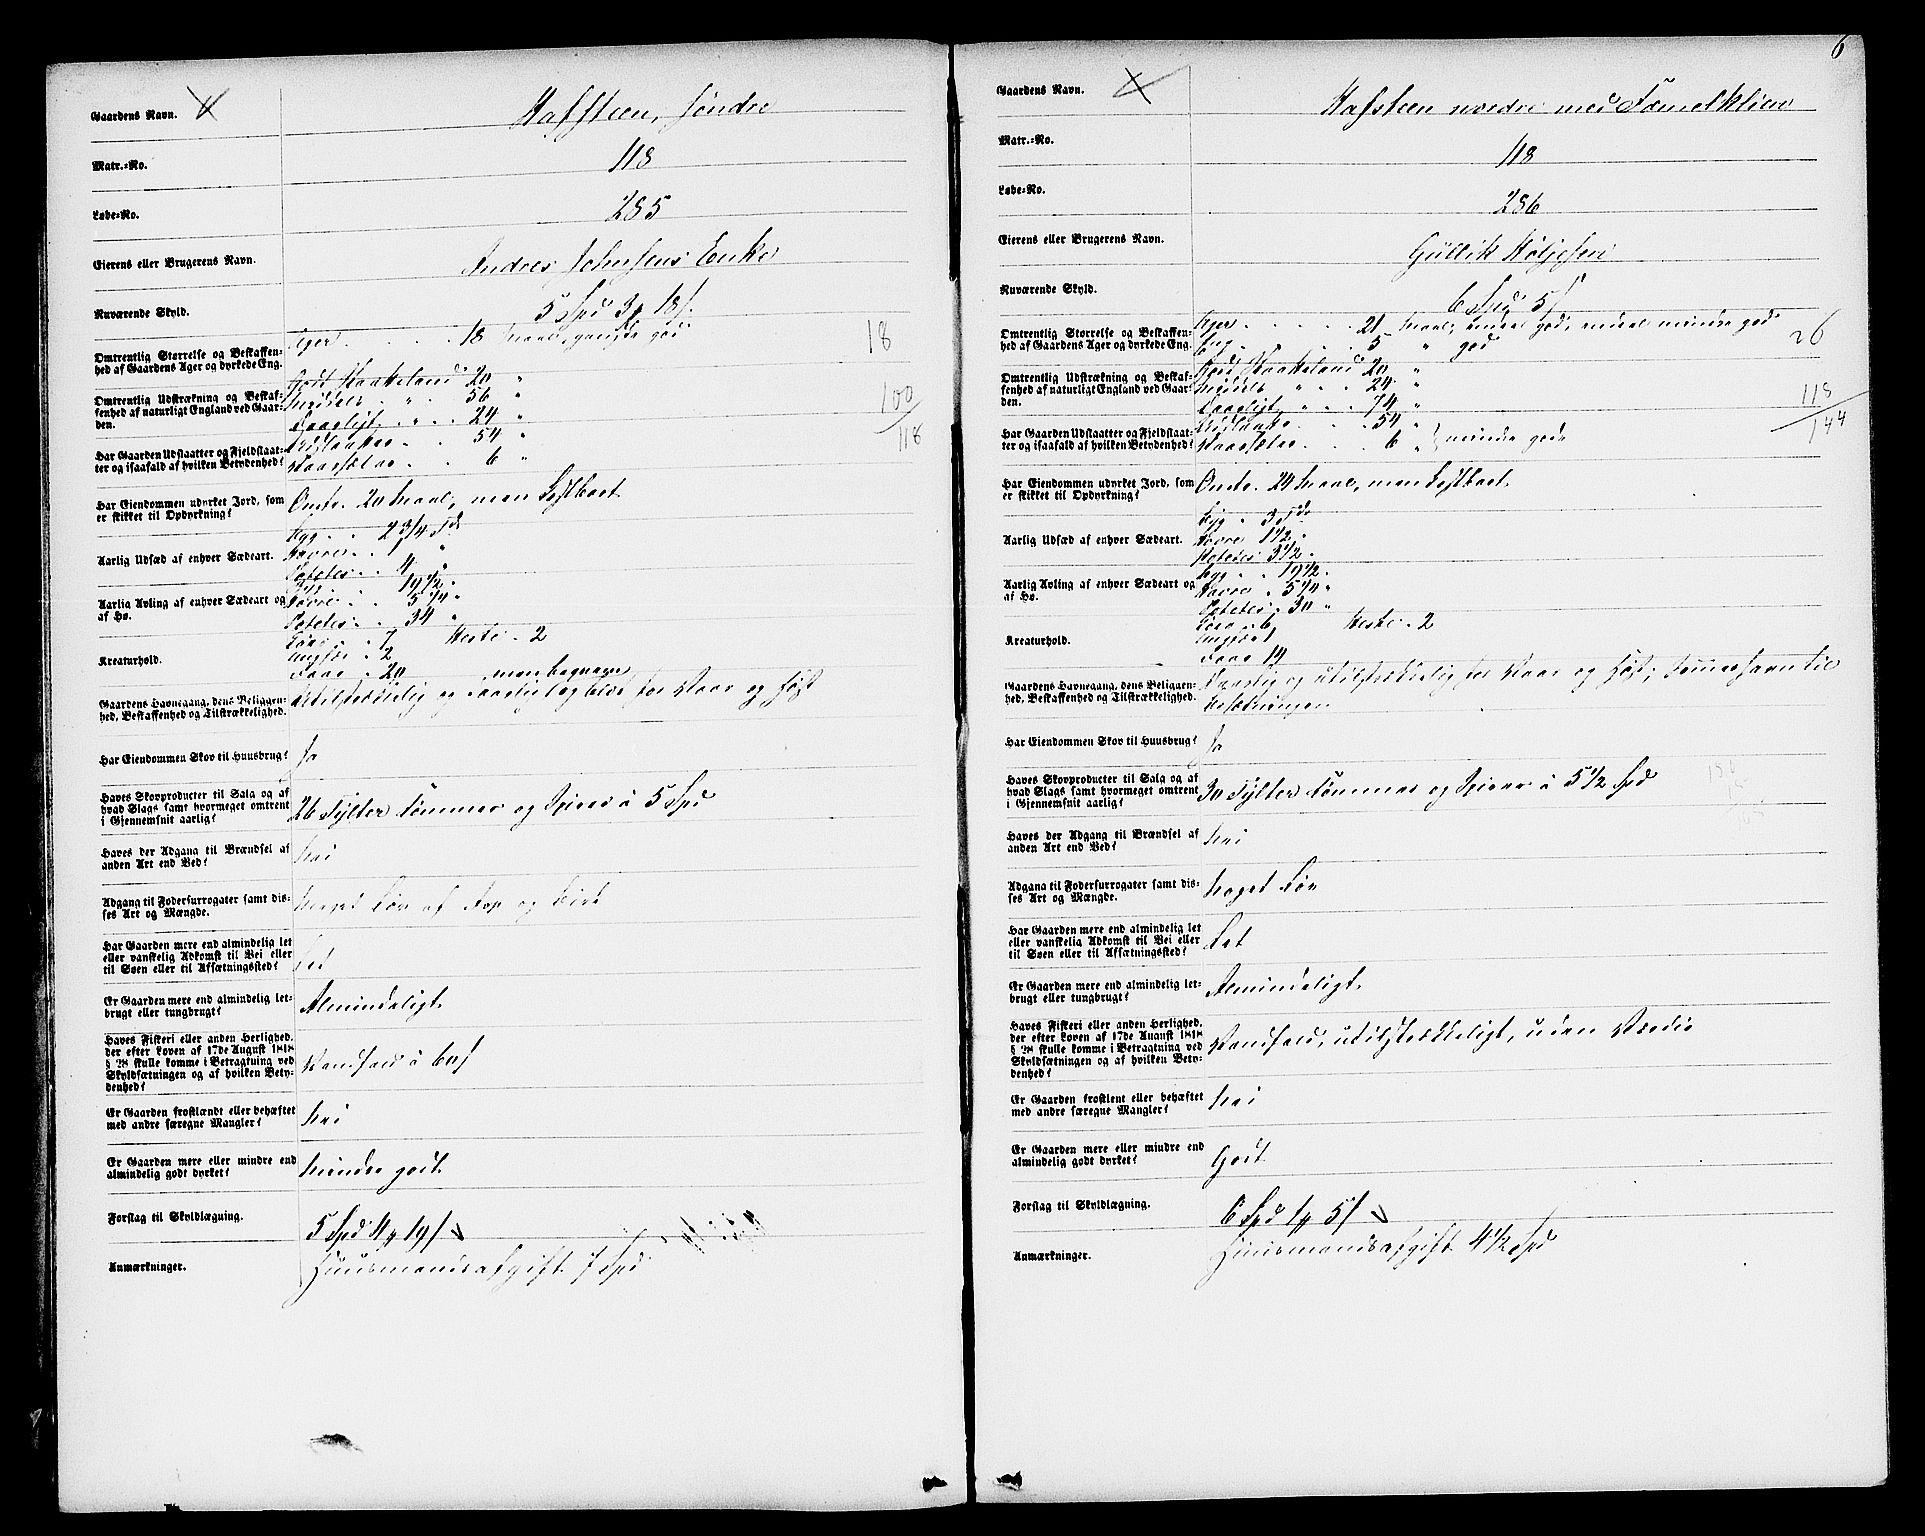 Gaardens Navn. Hafsteen, søndre
Matr.-No. 118
Løbe-No. 285
Eierens eller Brugerens Navn. Andres Johnsens Enke
Nuværende Skyld. 5 Spd 3 # 18 s.
Omtrentlig Størrelse og Beskaffen-
hed af Gaardens Ager og dyrkede Eng.
Ager . . . . 18 Maal, god
18
Omtrentlig Udstrækning og Beskaf-
fenhed af naturligt England ved Gaar-
den.
Godt Haakeland 20 "
Middels . " . 56 "
Daarligt . " . . 24 "
100
118
Har Gaarden Udslaatter og Fjeldslaat-
ter og isaafald af hvilken Betydenhed?
Udslaatter . . 54 "
. . 6 "
Har Eiendommen udyrket Jord, som
er skikket til Opdyrkning?
Omtr. 20 Maal, men kostbart
Aarlig Udsæd af enhver Sædeart.
Byg . . 2 3/4 Tdr
Havre . . 1 "
Poteter . . 4 "
Aarlig Avling af enhver Sædeart og
af Hø.
Byg . . 19 1/2 "
Havre . . 5 1/4 "
Poteter . . 34 "
Kreaturhold.
Kjør . . 7 Heste . 2
Ungfæ . 2
Faar . 20
Gaardens Havnegang, dens Beliggen-
hed, Beskaffenhed og Tilstrækkelighed.
men bequem
Utilstrækkelig og daarlig for Vaar og Høst
Har Eiendommen Skov til Huusbrug? Ja
Haves Skovproducter til Salg og af
hvad Slags samt hvormeget omtrent
i Gjennemsnit aarlig?
26 Tylter Tømmer og Spirer à 5 Spd
Haves der Adgang til Brændsel af
anden Art end Ved?
Nei
Adgang til Fodersurrogater samt dis-
ses Art og Mængde.
Noget Løv af Asp og Birk
Har Gaarden mere end almindelig let
eller vanskelig Adkomst til Vei eller
til Søen eller til Afsætningssted?
Let
Er Gaarden mere end almindelig let-
brugt eller tungbrugt?
Almindeligt
Haves Fiskeri eller anden Herlighed,
der efter Loven af 17de August 1818
§ 28 skulle komme i Betragtning ved
Skyldsætningen og af hvilken Bety-
denhed?
Vandfald à 60 s
Er Gaarden frostlændt eller behæftet
med andre særegne Mangler?
Nei
Er Gaarden mere eller mindre end
almindelig godt dyrket?
Mindre godt
Forslag til Skyldlægning. 5 Spd 4 # 19 s
Anmærkninger. Huusmandsafgift 7 Spd
6
Gaardens Navn. Hafsteen nordre med
Matr.-No. 118
Løbe-No. 286
Eierens eller Brugerens Navn. Gullik Høljesen
Nuværende Skyld. 6 Spd 5 s
Omtrentlig Størrelse og Beskaffen-
hed af Gaardens Ager og dyrkede Eng.
Ager . . . . . 21 Maal, god, mindre god
Eng . . . . . 5 " god
26
Omtrentlig Udstrækning og Beskaf-
fenhed af naturligt England ved Gaar-
den.
Godt Haakeland 20 "
Middels " . . 24 "
Daarligt " . . 74 "
118
144
Har Gaarden Udslaatter og Fjeldslaat-
ter og isaafald af hvilken Betydenhed?
Udslaatte . . . 54 "
. . . 6 " mindre gode
Har Eiendommen udyrket Jord, som
er skikket til Opdyrkning?
Omtr. 24 Maal, men kostbart
Aarlig Udsæd af enhver Sædeart.
Byg . 3 Tdr
Havre 1 1/2 "
Poteter 3 1/2 "
Aarlig Avling af enhver Sædeart og
af Hø.
Byg . . 19 1/2 "
Havre . 5 1/4 "
Poteter . 30 "
Kreaturhold.
Kjør . 6 Heste . 2
Ungfæ 1
Faar 14
Gaardens Havnegang, dens Beliggen-
hed, Beskaffenhed og Tilstrækkelighed.
Daarlig og utilstrækkelig for Vaar og Høst; Sommerhavn til
Besætningen
Har Eiendommen Skov til Huusbrug? Ja
Haves Skovproducter til Salg og af
hvad Slags samt hvormeget omtrent
i Gjennemsnit aarlig?
30 Tylter Tømmer og Spirer à 5 1/2 Spd
Haves der Adgang til Brændsel af
anden Art end Ved?
Nei
Adgang til Fodersurrogater samt dis-
ses Art og Mængde.
Noget Løv
Har Gaarden mere end almindelig let
eller vanskelig Adkomst til Vei eller
til Søen eller til Afsætningssted?
Let
Er Gaarden mere end almindelig let-
brugt eller tungbrugt?
Almindeligt
Haves Fiskeri eller anden Herlighed,
der efter Loven af 17de August 1818
§ 28 skulle komme i Betragtning ved
Skyldsætningen og af hvilken Bety-
denhed?
Vandfald, utilstrækkeligt, uden Værdie
Er Gaarden frostlent eller behæftet
med andre særegne Mangler?
Nei
Er Gaarden mere eller mindre end
almindelig godt dyrket?
Godt
Forslag til Skyldlægning. 6 Spd 1 # 5 s
Anmærkninger. Huusmandsafgift 4 1/2 Spd